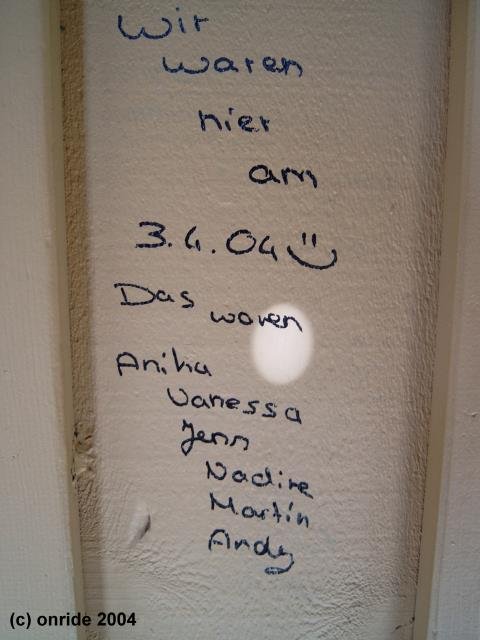 Wir
waren
hier
am
3.4.04 ¨)
Das waren
Anika
Vanessa
Jenn
Nadine
Martin
Andy
(c) onride 2004